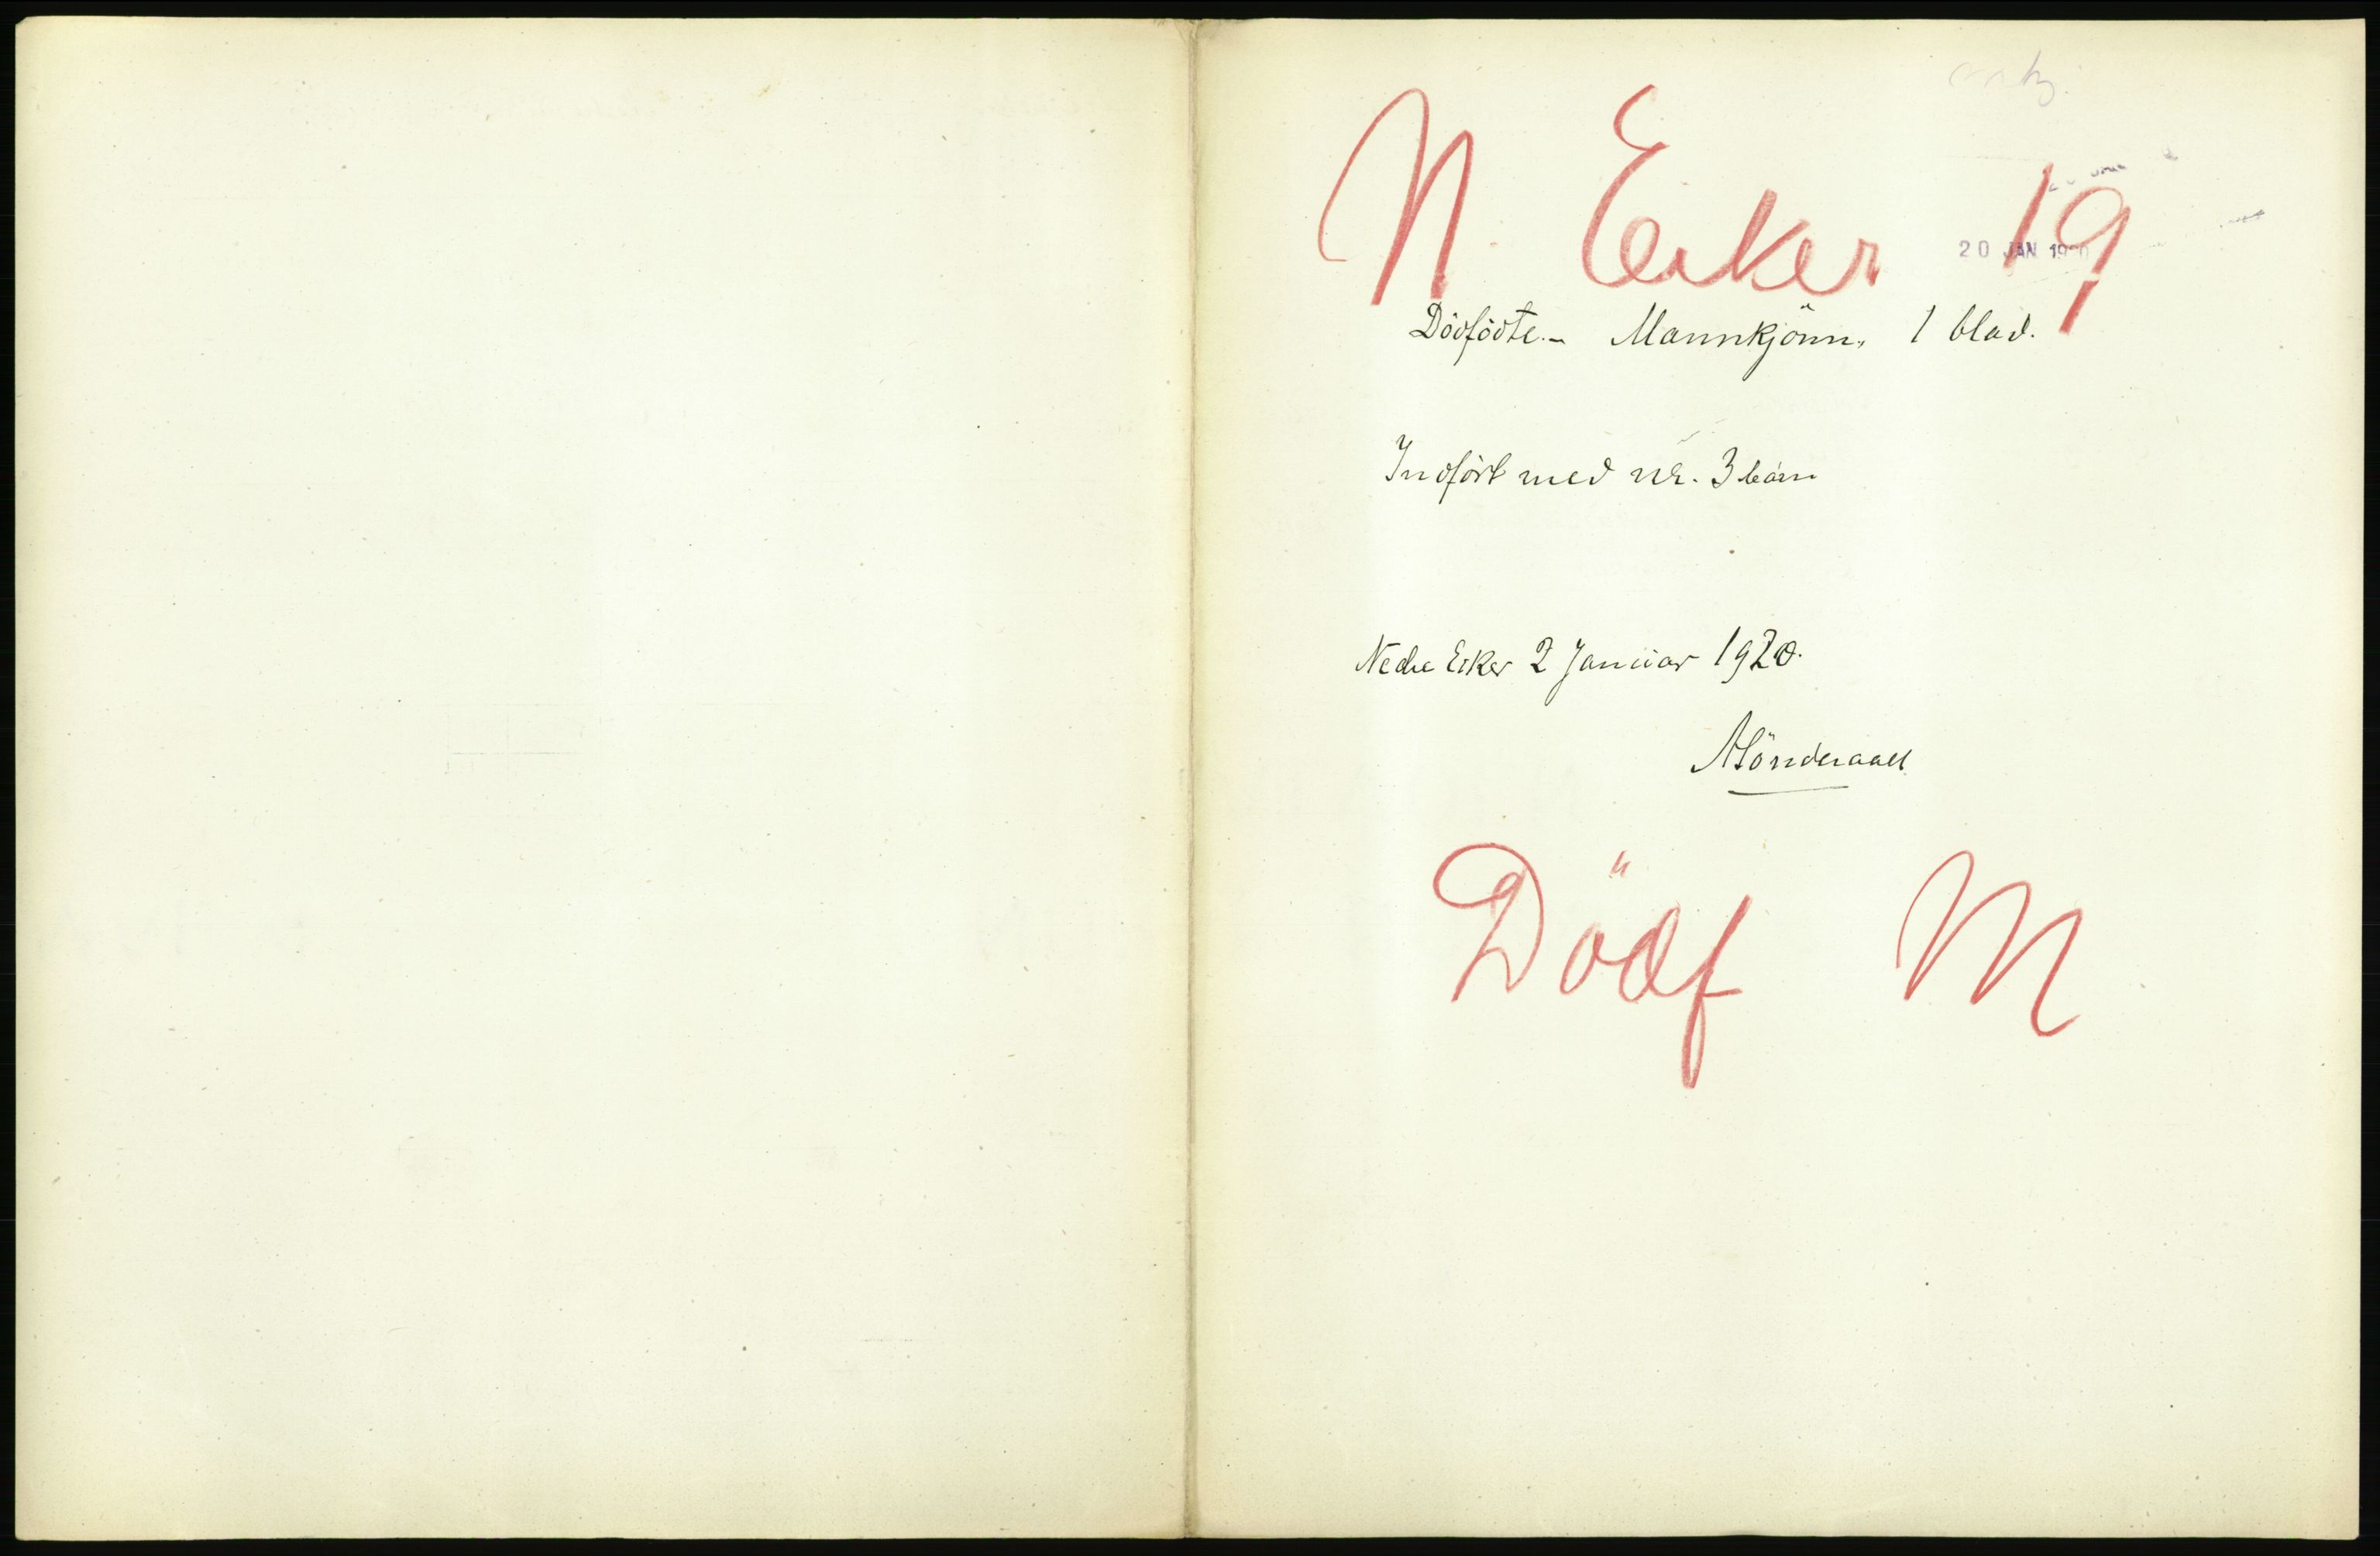 N. Eiker 19
20 JAN 1920
Dödfödte. – Mannkjönn. 1 blad.
Indfört med nr. 3 barn
Nedre Eiker 2 Januar 1920.
Dödf M